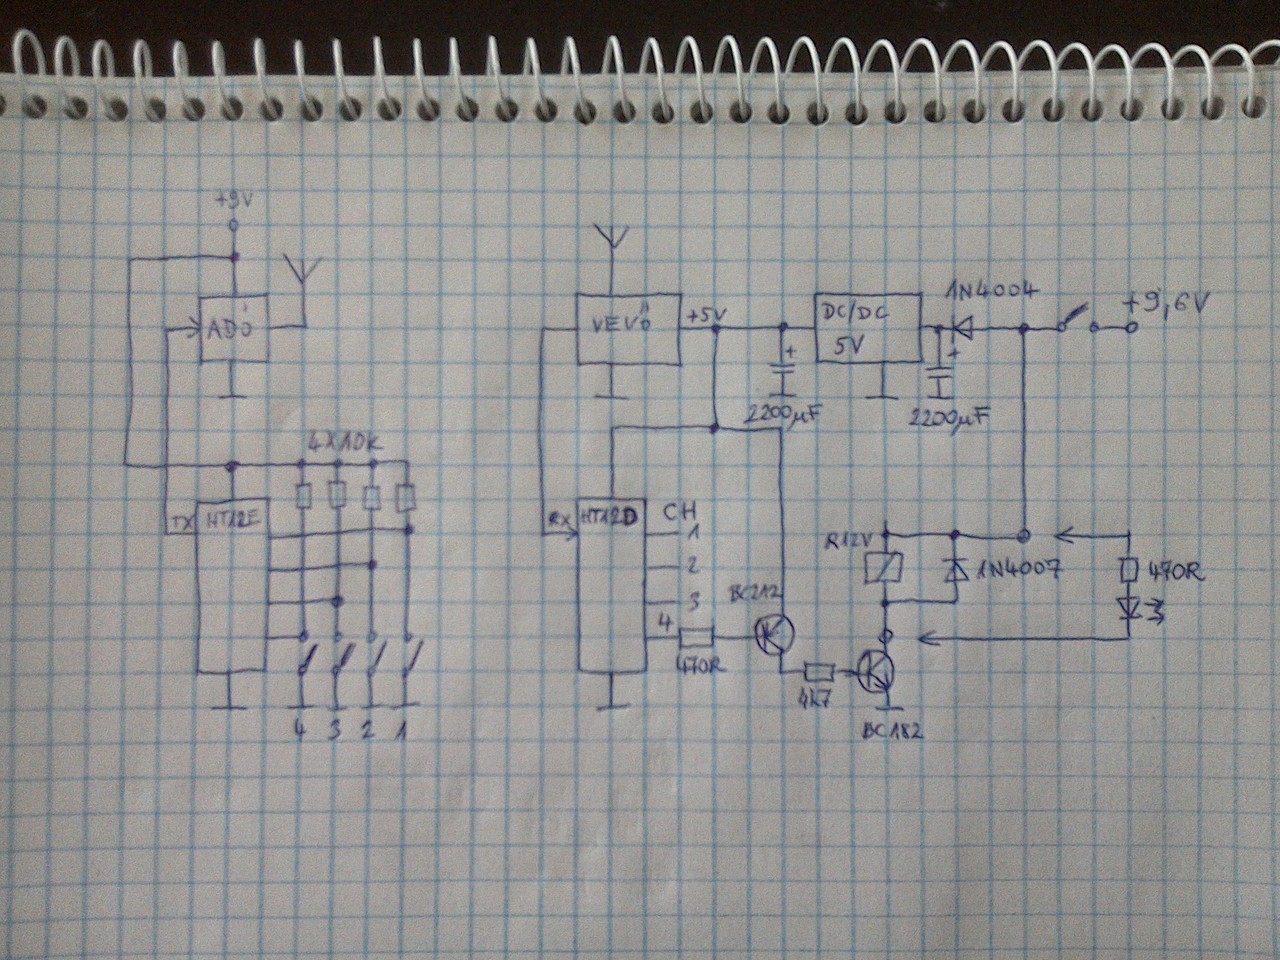 +9V
ADÓ
4X10K
TX HT12E
4 3 2 1
VEVŐ
+5V
DC/DC
5V
1N4004
+9,6V
+
2200µF
+
2200µF
RX HT12D
CH
1
2
3
4
470R
BC212
4k7
R12V
1N4007
470R
BC182